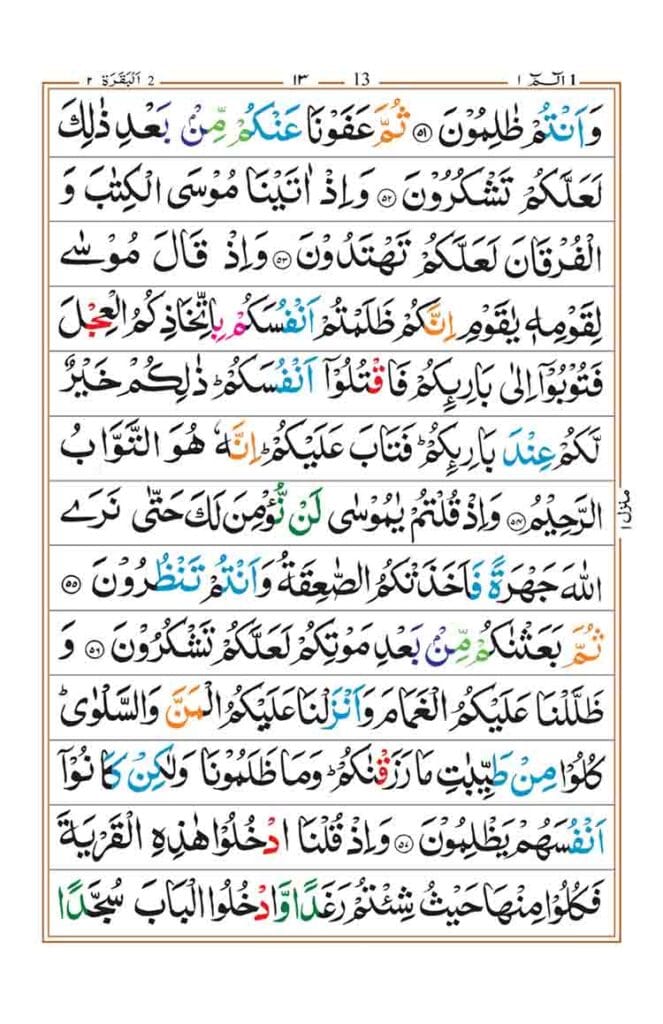 2 اَلْبَقَرَة ٢ ١٣ 13 1 الٓـمّٓ ١
وَاَنْتُمْ ظٰلِمُوْنَ ۝٥١ ثُمَّ عَفَوْنَا عَنْكُمْ مِّنْۢ بَعْدِ ذٰلِكَ
لَعَلَّكُمْ تَشْكُرُوْنَ ۝٥٢ وَاِذْ اٰتَيْنَا مُوْسَى الْكِتٰبَ وَ
الْفُرْقَانَ لَعَلَّكُمْ تَهْتَدُوْنَ ۝٥٣ وَاِذْ قَالَ مُوْسٰى
لِقَوْمِهٖ يٰقَوْمِ اِنَّكُمْ ظَلَمْتُمْ اَنْفُسَكُمْ بِاتِّخَاذِكُمُ الْعِجْلَ
فَتُوْبُوْٓا اِلٰى بَارِىِٕكُمْ فَاقْتُلُوْٓا اَنْفُسَكُمْ ؕ ذٰلِكُمْ خَيْرٌ
لَّكُمْ عِنْدَ بَارِىِٕكُمْ ؕ فَتَابَ عَلَيْكُمْ ؕ اِنَّهٗ هُوَ التَّوَّابُ
الرَّحِيْمُ ۝٥٤ وَاِذْ قُلْتُمْ يٰمُوْسٰى لَنْ نُّؤْمِنَ لَكَ حَتّٰى نَرَى
اللّٰهَ جَهْرَةً فَاَخَذَتْكُمُ الصّٰعِقَةُ وَاَنْتُمْ تَنْظُرُوْنَ ۝٥٥
ثُمَّ بَعَثْنٰكُمْ مِّنْۢ بَعْدِ مَوْتِكُمْ لَعَلَّكُمْ تَشْكُرُوْنَ ۝٥٦ وَ
ظَلَّلْنَا عَلَيْكُمُ الْغَمَامَ وَاَنْزَلْنَا عَلَيْكُمُ الْمَنَّ وَالسَّلْوٰى ؕ
كُلُوْا مِنْ طَيِّبٰتِ مَا رَزَقْنٰكُمْ ؕ وَمَا ظَلَمُوْنَا وَلٰكِنْ كَانُوْٓا
اَنْفُسَهُمْ يَظْلِمُوْنَ ۝٥٧ وَاِذْ قُلْنَا ادْخُلُوْا هٰذِهِ الْقَرْيَةَ
فَكُلُوْا مِنْهَا حَيْثُ شِئْتُمْ رَغَدًا وَّادْخُلُوا الْبَابَ سُجَّدًا
منزل ١